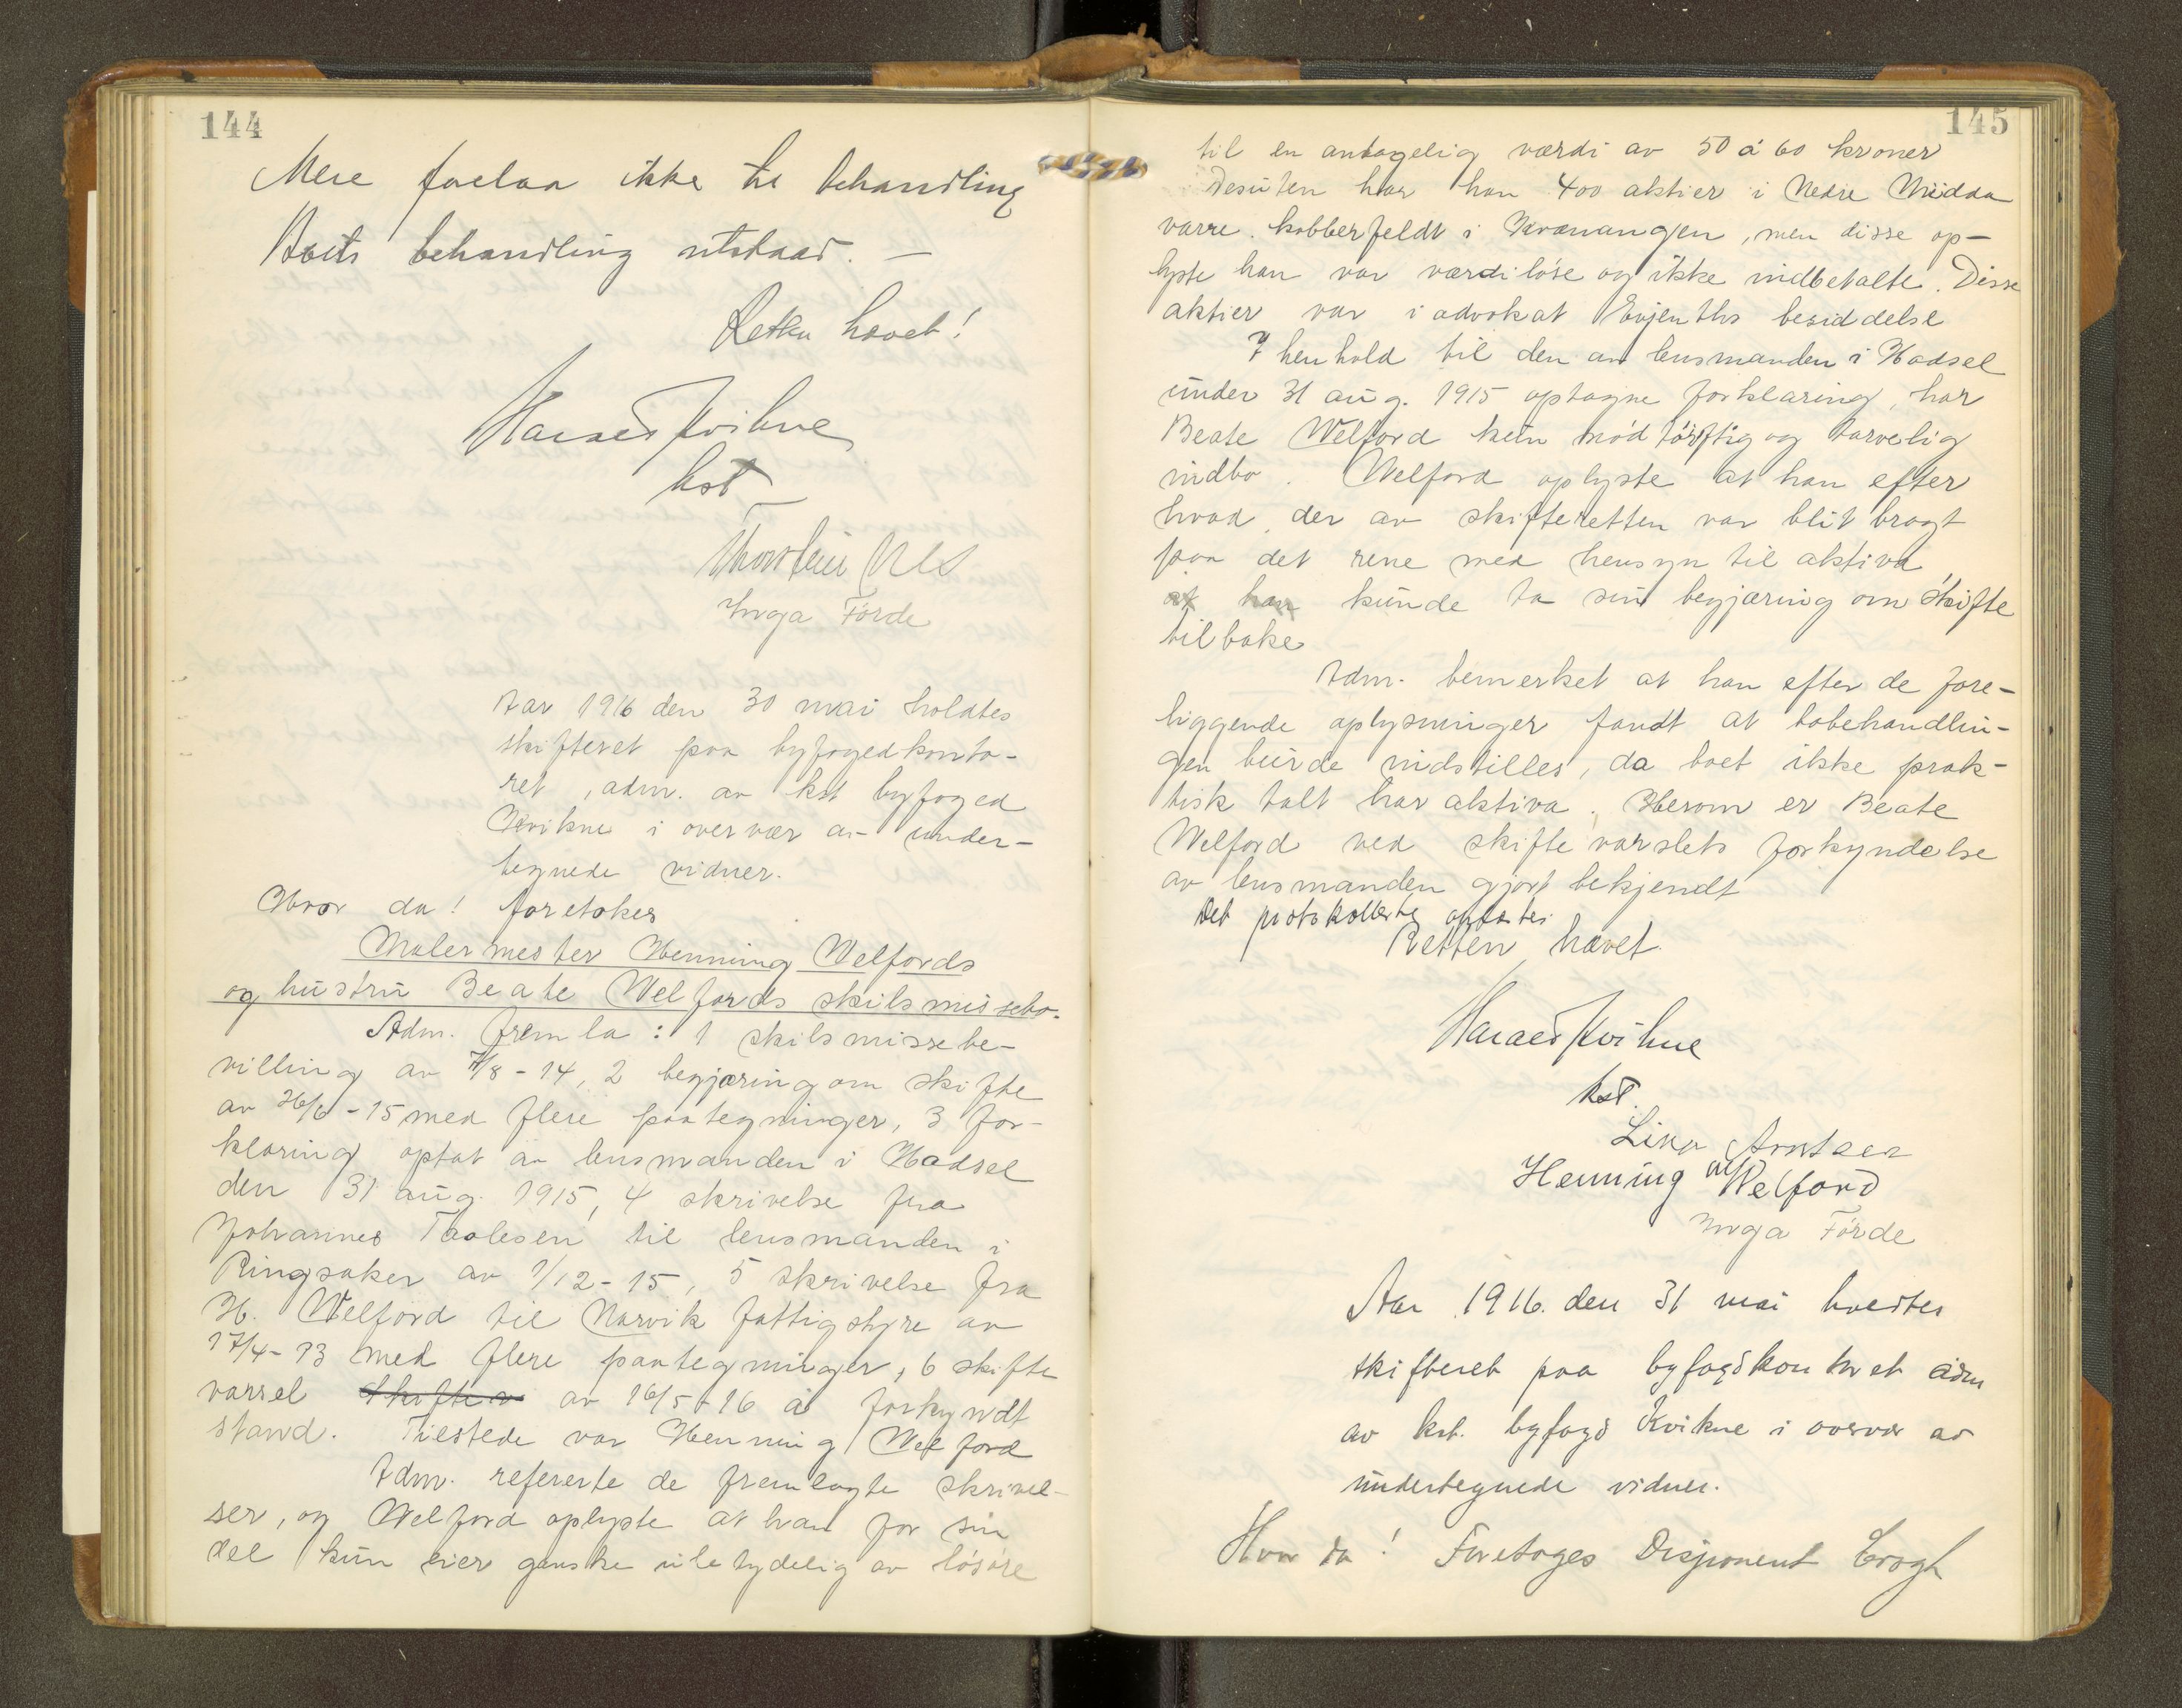 144
Mere forelaa ikke til behandling
Boets behandling utstaar. —
Retten hævet!
Harald Kvikne
kst
Thorstein Uls
Inga Förde
Aar 1916 den 30 mai holdtes
skifteret paa byfogedkonto-
ret, adm. av kst byfoged
Kvikne i overvær av under-
tegnede vidner.
Hvor da! foretokes
Malermester Henning Welfords
og hustru Beate Welfords skilsmissebo.
Adm. fremla: 1 skilsmissebe-
villing av 7/8-14, 2 begjæring om skifte
av 26/6-15 med flere paategninger, 3 for-
klaring optat av lensmanden i Hadsel
den 31 aug. 1915, 4 skrivelse fra
Johannes Taalesen til lensmanden i
Ringsaker av 1/12-15, 5 skrivelse fra
H. Welford til Narvik fattigstyre av
17/4-13 med flere paategninger, 6 skifte
varsel av 16/5-16 i forkyndt
stand. Tilstede var Henning Welford
Adm. refererte de fremlagte skrivel-
ser, og Welford oplyste at han for sin
del kun eier ganske ubetydelig av lösöre
145
til en antagelig værdi av 50 à 60 kroner
Desuten har han 400 aktier i Nedre Middа
varre. kobberfeldt i Kvænangen, men disse op-
lyste han var værdilöse og ikke indbetalte. Disse
aktier var i advokat Evjenths besiddelse
I henhold til den av lensmanden i Hadsel
under 31 aug. 1915 optagne forklaring, har
Beate Welford kun nödtörftig og tarvelig
indbo. Welford oplyste at han efter
hvad der av skifteretten var blit bragt
paa det rene med hensyn til aktiva,
at han kunde ta sin begjæring om skifte
tilbake
Adm. bemerket at han efter de fore-
liggende oplysninger fandt at bobehandlin-
gen burde indstilles, da boet ikke prak-
tisk talt har aktiva. Herom er Beate
Welford ved skiftevarslets forkyndelse
av lensmanden gjort bekjendt
Det protokollerte oplæstes
Retten hævet.
Harald Kvikne
kst.
Lina Arntsen
Henning Welford
Inga Förde
Aar 1916. den 31 mai holdtes
skifteret paa byfogdkontoret adm
av kst. byfogd Kvikne i overvær av
undertegnede vidner.
Hvor da! Foretoges Disponent Krogh